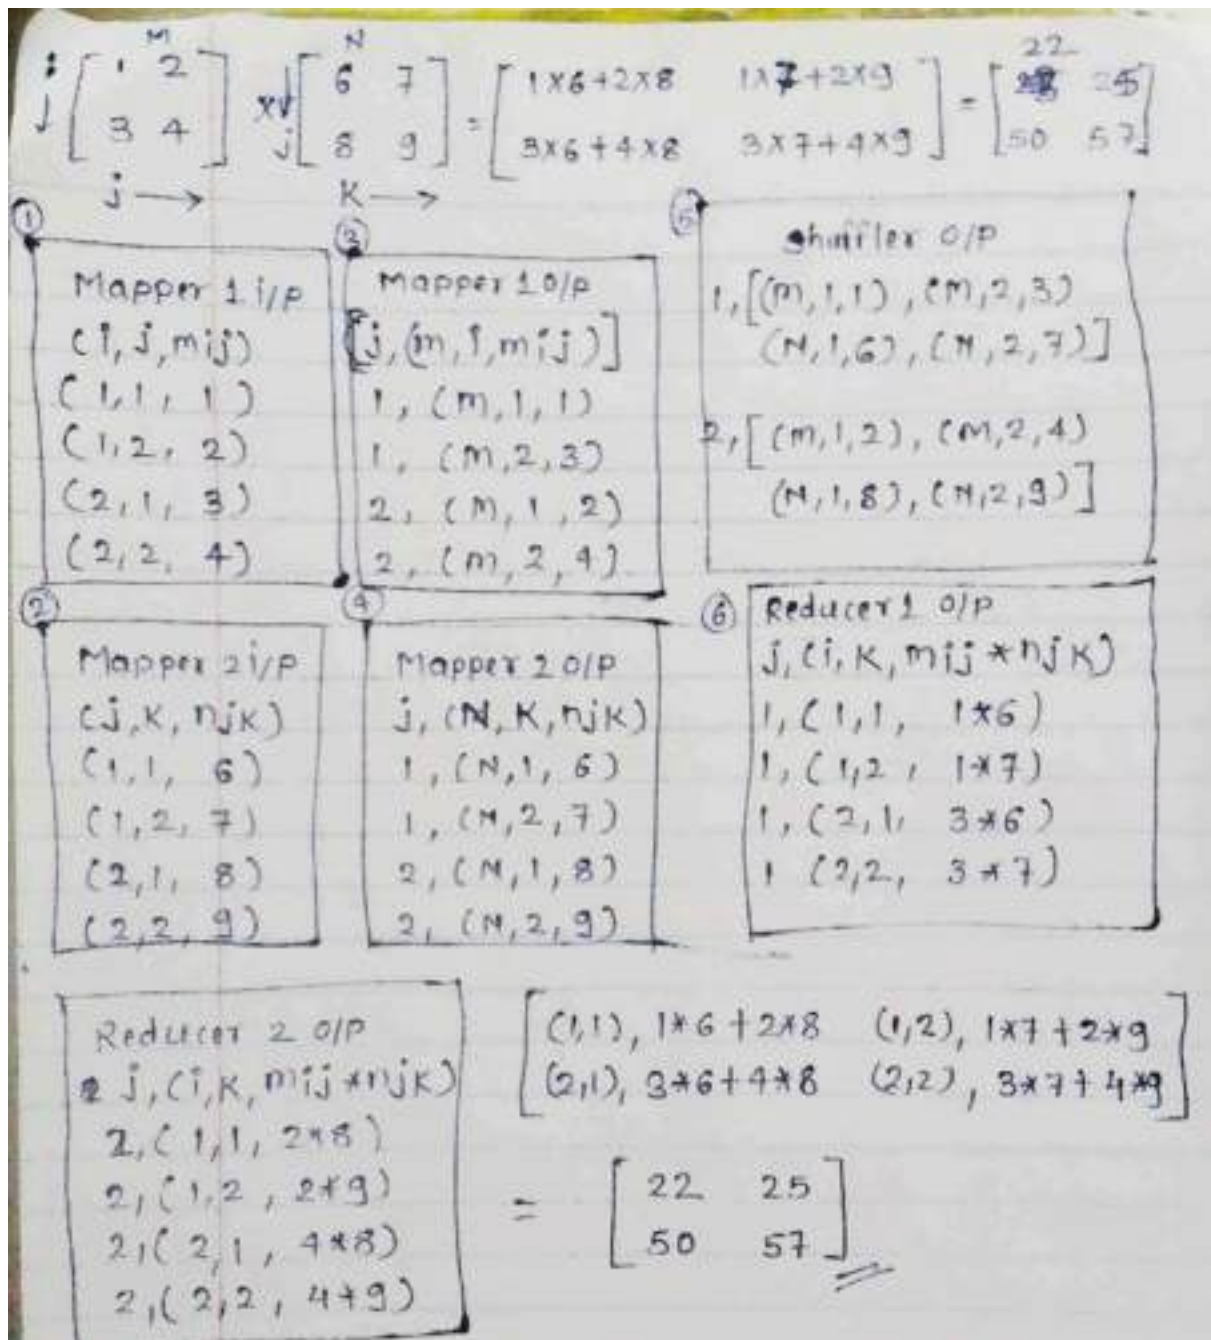 M N
i [ 1 2 ] × j [ 6 7 ] = [ 1×6+2×8 1×7+2×9 ] = [ 22 25 ]
[ 3 4 ] [ 8 9 ] [ 3×6+4×8 3×7+4×9 ] [ 50 57 ]
j → K →
①
Mapper 1 i/p
(i, j, mij)
(1,1, 1)
(1,2, 2)
(2,1, 3)
(2,2, 4)
③
Mapper 1 o/p
[j, (m, i, mij)]
1, (m,1,1)
1, (m,2,3)
2, (m,1,2)
2, (m,2,4)
⑤
Shuffler o/p
1, [(m,1,1), (m,2,3)
(N,1,6), (N,2,7)]
2, [(m,1,2), (m,2,4)
(N,1,8), (N,2,9)]
②
Mapper 2 i/p
(j, K, njK)
(1,1, 6)
(1,2, 7)
(2,1, 8)
(2,2, 9)
④
Mapper 2 o/p
j, (N, K, njK)
1, (N,1,6)
1, (N,2,7)
2, (N,1,8)
2, (N,2,9)
⑥
Reducer 1 o/p
j, (i, K, mij * njK)
1, (1,1, 1*6)
1, (1,2, 1*7)
1, (2,1, 3*6)
1 (2,2, 3*7)
Reducer 2 o/p
j, (i, K, mij * njK)
2, (1,1, 2*8)
2, (1,2, 2*9)
2, (2,1, 4*8)
2, (2,2, 4*9)
[ (1,1), 1*6+2*8 (1,2), 1*7+2*9 ]
[ (2,1), 3*6+4*8 (2,2), 3*7+4*9 ]
= [ 22 25 ]
[ 50 57 ]